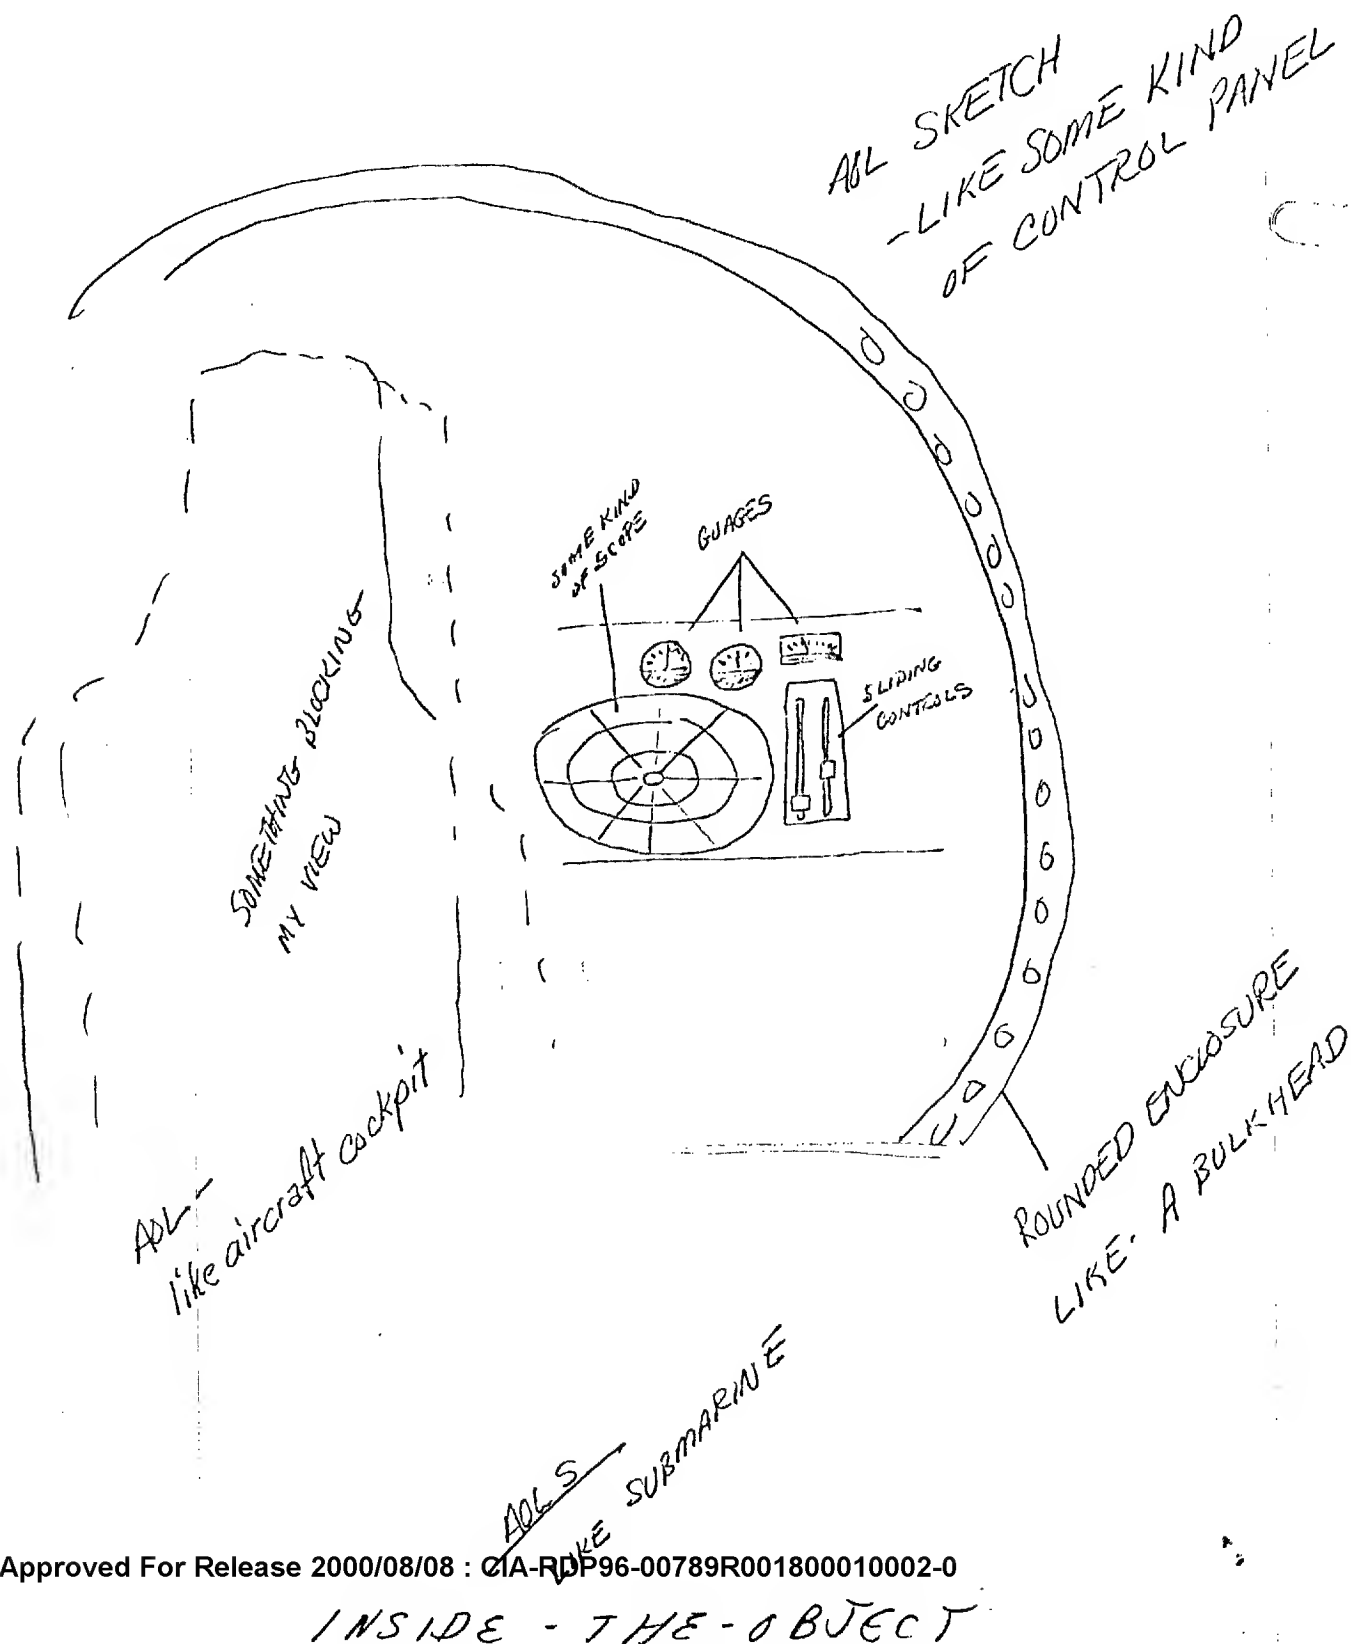 AOL SKETCH
-LIKE SOME KIND
OF CONTROL PANEL
SOME KIND
OF SCOPE
GUAGES
SLIDING
CONTROLS
SOMETHING BLOCKING
MY VIEW
AOL-
like aircraft cockpit
ROUNDED ENCLOSURE
LIKE. A BULKHEAD
AOL S
LIKE SUBMARINE
Approved For Release 2000/08/08 : CIA-RDP96-00789R001800010002-0
INSIDE - THE - OBJECT